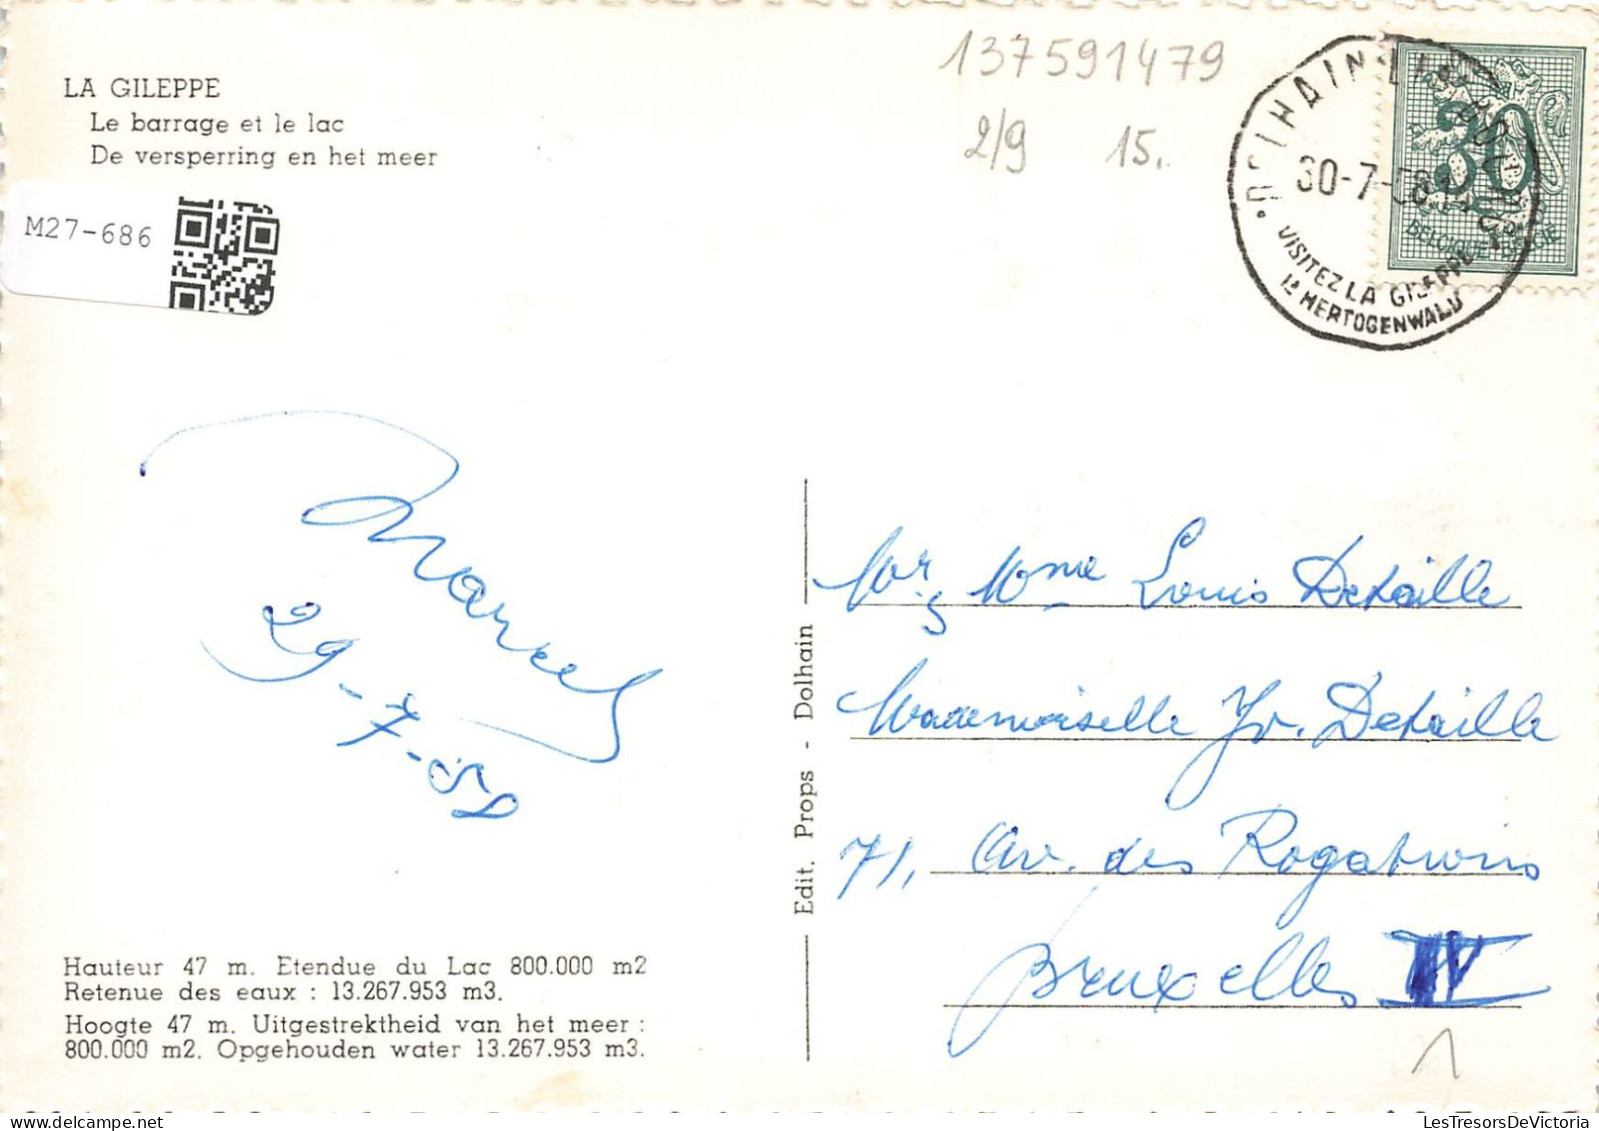 LA GILEPPE
Le barrage et le lac
De versperring en het meer
M27-686
137591479
2/9 15.
30-7-
VISITEZ LA GILEPPE
HERTOGENWALD
30
BELGIQUE-BELGIE
Marcel
29-7-58
Edit. Props - Dolhain
Mr, Mme Louis Detaille
Mademoiselle Yv. Detaille
71, Av. des Rogations
Bruxelles IV
1
Hauteur 47 m. Etendue du Lac 800.000 m2
Retenue des eaux : 13.267.953 m3.
Hoogte 47 m. Uitgestrektheid van het meer :
800.000 m2. Opgehouden water 13.267.953 m3.
LesTresorsDeVictoria.com